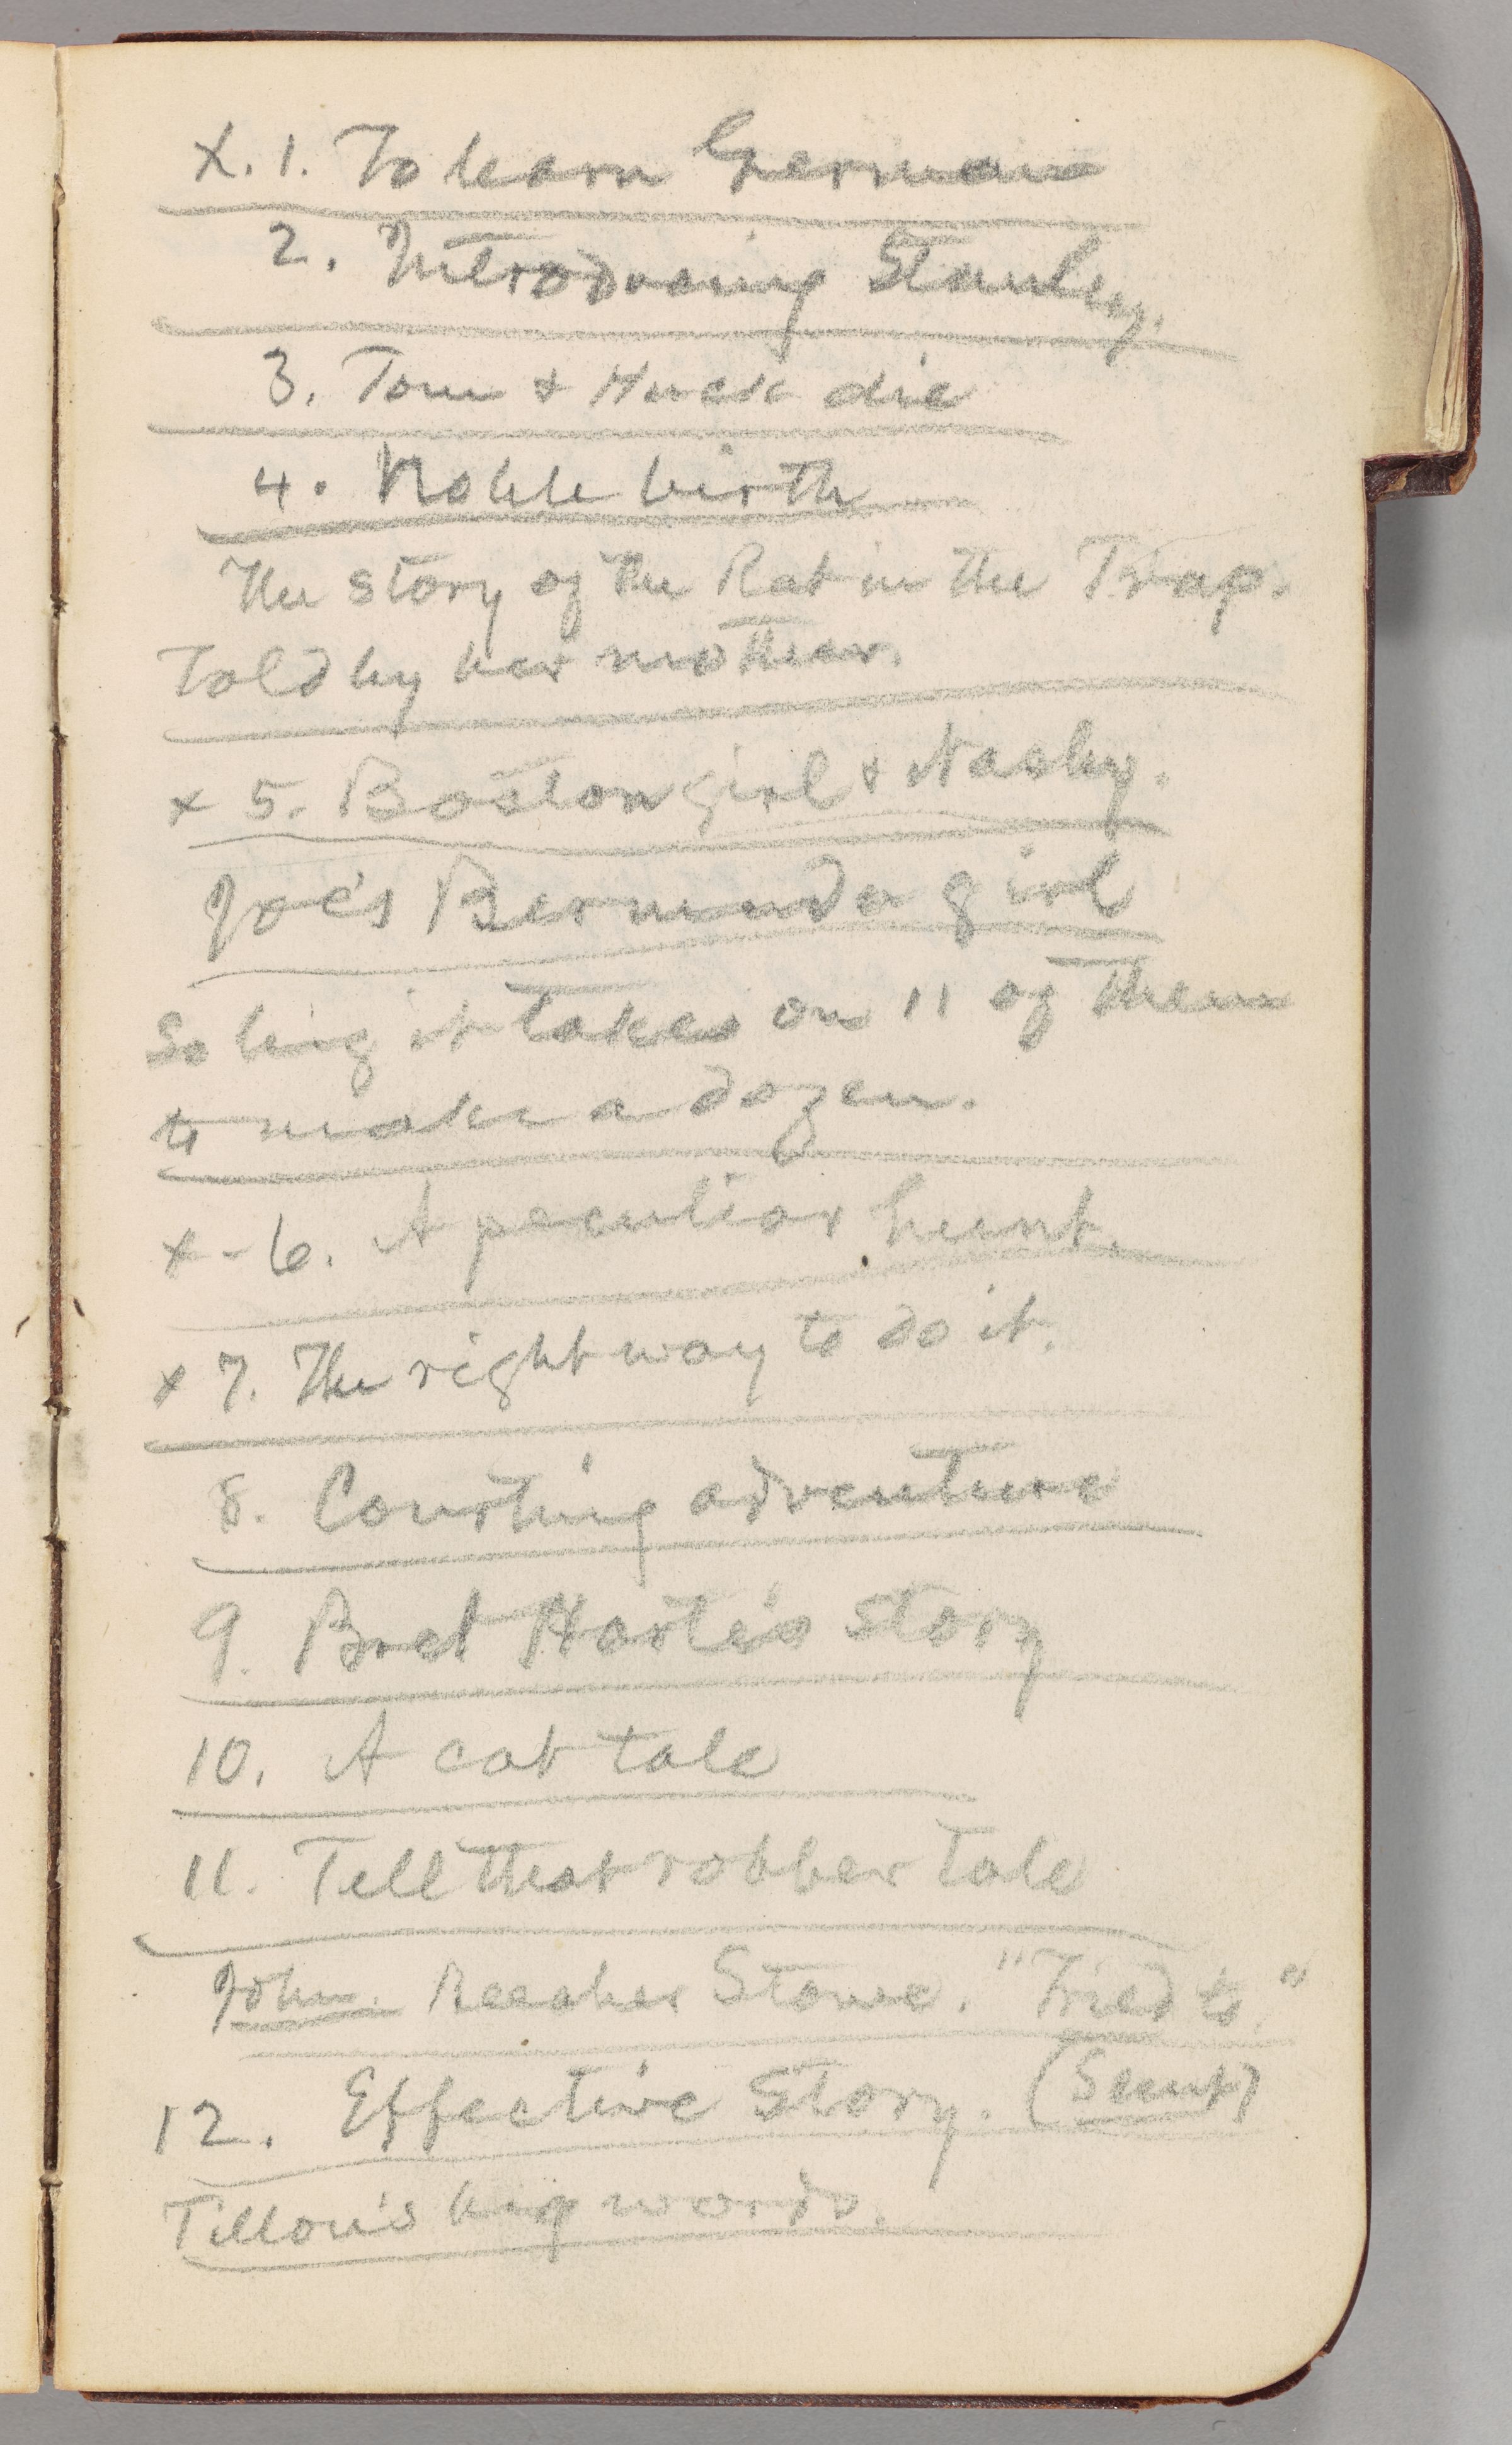 X. 1. To learn German
2. Introducing Stanley.
3. Tom & Huck die
4. Noble birth
The story of the Rat in the Trap.
Told by her mother.
x 5. Boston girl & Nasby.
Joe's Bermuda girl
So big it takes on 11 of them
to make a dozen.
x - 6. A peculiar hunt.
x 7. The right way to do it.
8. Courting adventure
9. Bret Harte's story
10. A cat tale
11. Tell that robber tale
John. Beecher Stowe. "Tried to."
12. Effective Story. (Scunt)
Tillou's big words.